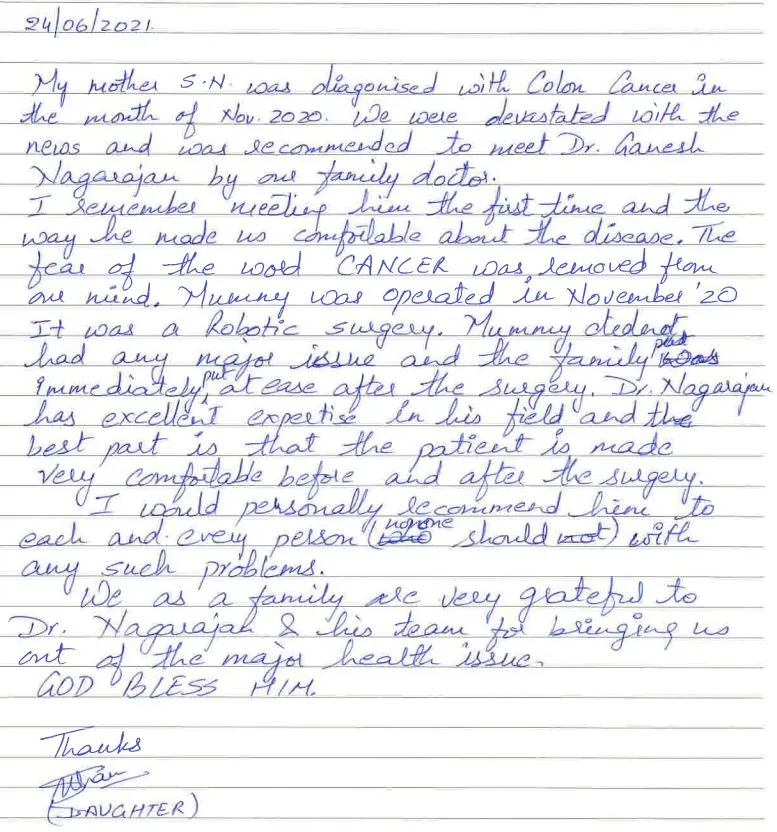 24/06/2021.
My mother S.N. was diagonised with Colon Cancer in
the month of Nov. 2020. We were devastated with the
news and was recommended to meet Dr. Ganesh
Nagarajan by our family doctor.
I remember meeting him the first time and the
way he made us comfortable about the disease. The
fear of the word CANCER was removed from
our mind. Mummy was operated in November '20
It was a Robotic surgery. Mummy didnot
had any major issue and the family
immediately put at ease after the surgery. Dr. Nagarajan
has excellent expertise in his field and the
best part is that the patient is made
very comfortable before and after the surgery.
I would personally recommend him to
each and every person (noone should not) with
any such problems.
We as a family are very grateful to
Dr. Nagarajan & his team for bringing us
out of the major health issue.
GOD BLESS HIM.
Thanks
(DAUGHTER)